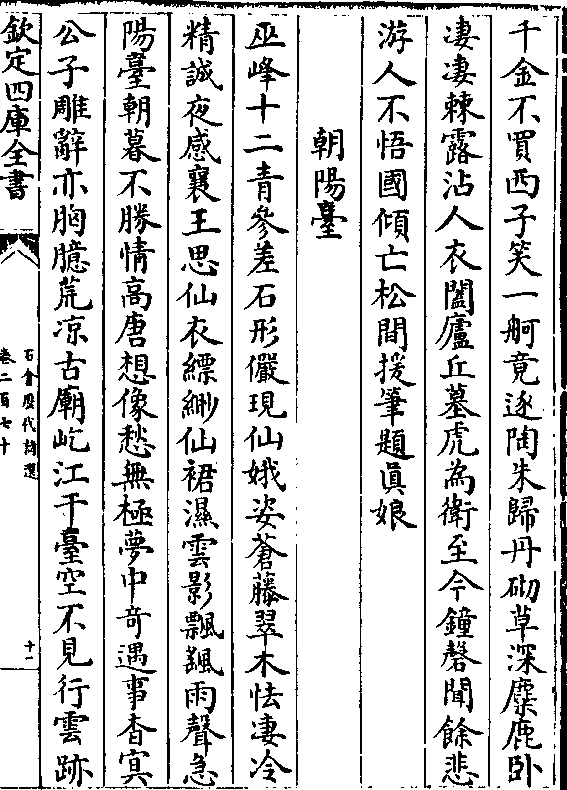 千金不買西子笑一舸竟逐陶朱歸丹砌草深麋鹿卧
凄凄棘露沾人衣闔廬丘墓虎為衛至今鐘磬聞餘悲
游人不悟國傾亡松間援筆題真娘
朝陽臺
巫峰十二青參差石形儼現仙娥姿蒼藤翠木怯凄冷
精誠夜感襄王思仙衣縹緲仙裙濕雲影飄飄雨聲急
陽臺朝暮不勝情高唐想像愁無極夢中奇遇事杳冥
公子雕辭亦胸臆荒凉古廟屹江干臺空不見行雲跡
欽定四庫全書
石倉歷代詩選
卷二百七十
十一